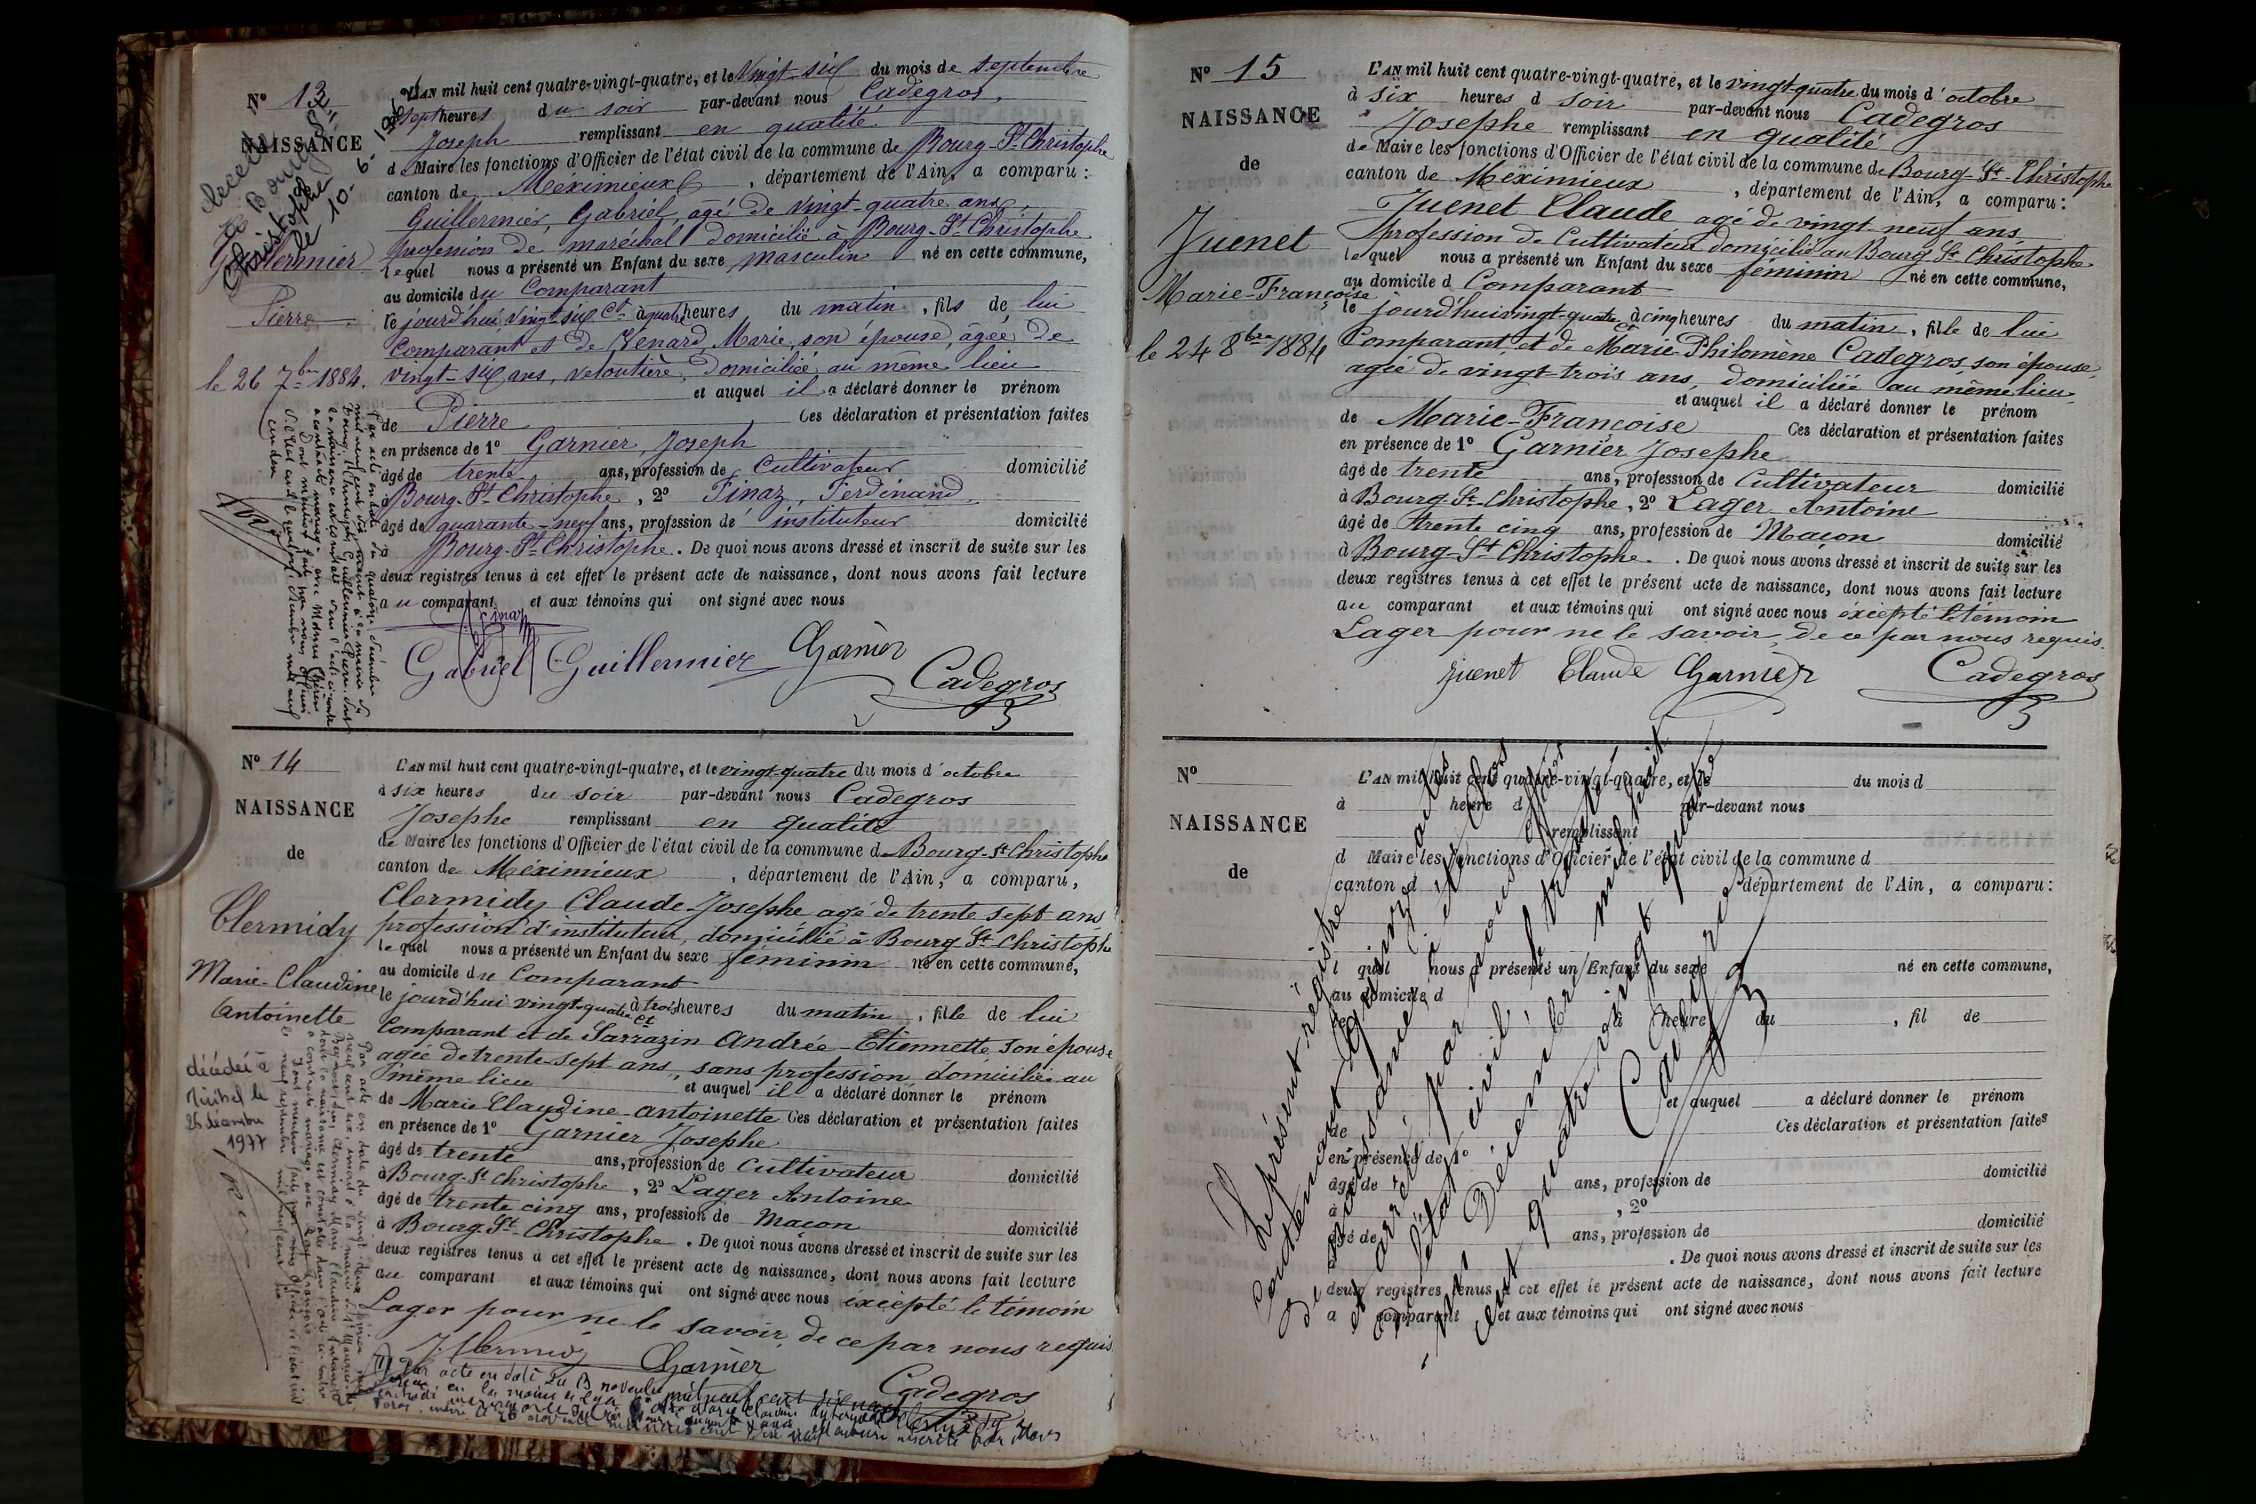 N° 13
NAISSANCE
Guillermier
Pierre
le 26 7bre 1884.
L'AN mil huit cent quatre-vingt-quatre, et le Vingt-six du mois de septembre
à sept heures du soir par-devant nous Cadegros,
Joseph remplissant en qualité
de Maire les fonctions d'Officier de l'état civil de la commune de Bourg-St-Christophe
canton de Méximieux, département de l'Ain, a comparu :
Guillermier, Gabriel, âgé de vingt-quatre ans,
profession de maréchal domicilié à Bourg-St-Christophe
lequel nous a présenté un Enfant du sexe masculin né en cette commune,
au domicile du Comparant
le jourd'hui vingt-six Ct à quatre heures du matin, fils de lui
Comparant et de Venard, Marie, son épouse, âgée de
vingt-six ans, veloutière, domiciliée au même lieu
et auquel il a déclaré donner le prénom
de Pierre Ces déclaration et présentation faites
en présence de 1° Garnier, Joseph
âgé de trente ans, profession de Cultivateur domicilié
à Bourg-St-Christophe, 2° Finaz, Ferdinand
âgé de quarante-neuf ans, profession de instituteur domicilié
Bourg-St-Christophe. De quoi nous avons dressé et inscrit de suite sur les
deux registres tenus à cet effet le présent acte de naissance, dont nous avons fait lecture
au comparant et aux témoins qui ont signé avec nous
Finaz
Gabriel Guillermier Garnier
Cadegros
N° 14
NAISSANCE
de
Clermidy
Marie-Claudine
Antoinette
décédée à
Miribel le
26 décembre
1977
L'AN mil huit cent quatre-vingt-quatre, et le vingt-quatre du mois d'octobre
à six heures du soir par-devant nous Cadegros
Josephe remplissant en qualité
de Maire les fonctions d'Officier de l'état civil de la commune d Bourg-St-Christophe
canton de Méximieux, département de l'Ain, a comparu,
Clermidy Claude-Josephe agé de trente sept ans
profession d'instituteur, domicilié à Bourg St Christophe
le quel nous a présenté un Enfant du sexe féminin né en cette commune,
au domicile du Comparant
le jourd'hui vingt-quatre Ct à trois heures du matin, fille de lui
Comparant et de Sarrazin Andrée-Etiennette, son épouse
agée de trente-sept ans, sans profession domiciliée au
même lieu et auquel il a déclaré donner le prénom
de Marie Claudine-antoinette Ces déclaration et présentation faites
en présence de 1° Garnier Josephe
âgé de trente ans, profession de Cultivateur domicilié
à Bourg-St-Christophe, 2° Lager Antoine
âgé de trente cinq ans, profession de Maçon
à Bourg-St-Christophe domicilié
. De quoi nous avons dressé et inscrit de suite sur les
deux registres tenus à cet effet le présent acte de naissance, dont nous avons fait lecture
au comparant et aux témoins qui ont signé avec nous excépté le témoin
Lager pour ne le savoir, de ce par nous requis
Clermidy Garnier
Cadegros
N° 15
NAISSANCE
de
Juenet
Marie-Françoise
le 24 8bre 1884
L'AN mil huit cent quatre-vingt-quatre, et le vingt-quatre du mois d'octobre
à six heures d soir par-devant nous Cadegros
Josephe remplissant en qualité
de Maire les fonctions d'Officier de l'état civil de la commune de Bourg-St-Christophe
canton de Méximieux, département de l'Ain, a comparu :
Juenet Claude agé de vingt-neuf ans
profession de Cultivateur domicilié au Bourg St Christophe
le quel nous a présenté un Enfant du sexe féminin né en cette commune,
au domicile d Comparant
le jourd'hui vingt-quatre Ct à cinq heures du matin, fille de lui
Comparant, et de Marie-Philomène Cadegros, son épouse,
agée de vingt-trois ans, domiciliée au même lieu,
et auquel il a déclaré donner le prénom
de Marie-Françoise Ces déclaration et présentation faites
en présence de 1° Garnier Josephe
âgé de trente ans, profession de Cultivateur domicilié
à Bourg-St-Christophe, 2° Lager Antoine
âgé de trente cinq ans, profession de Maçon domicilié
à Bourg-St Christophe. De quoi nous avons dressé et inscrit de suite sur les
deux registres tenus à cet effet le présent acte de naissance, dont nous avons fait lecture
au comparant et aux témoins qui ont signé avec nous excépté le témoin
Lager pour ne le savoir, de ce par nous requis.
Juenet Claude Garnier Cadegros
N°
NAISSANCE
de
L'AN mil huit cent quatre-vingt-quatre, et le du mois d
à heure d par-devant nous
remplissant
d Maire les fonctions d'Officier de l'état civil de la commune d
canton d département de l'Ain, a comparu :
l quel nous a présenté un Enfant du sexe né en cette commune,
au domicile d
le à heure du , fil de
et auquel a déclaré donner le prénom
de Ces déclaration et présentation faites
en présence de 1°
âgé de ans, profession de domicilié
à , 2°
âgé de ans, profession de domicilié
. De quoi nous avons dressé et inscrit de suite sur les
deux registres tenus à cet effet le présent acte de naissance, dont nous avons fait lecture
a comparant et aux témoins qui ont signé avec nous
Le présent régistre
Contenant quinze actes
de naissance, a été clos
et arrêté par nous officier
de l'état civil, le trente et
un Décembre mil huit
cent quatre vingt quatre
Cadegros